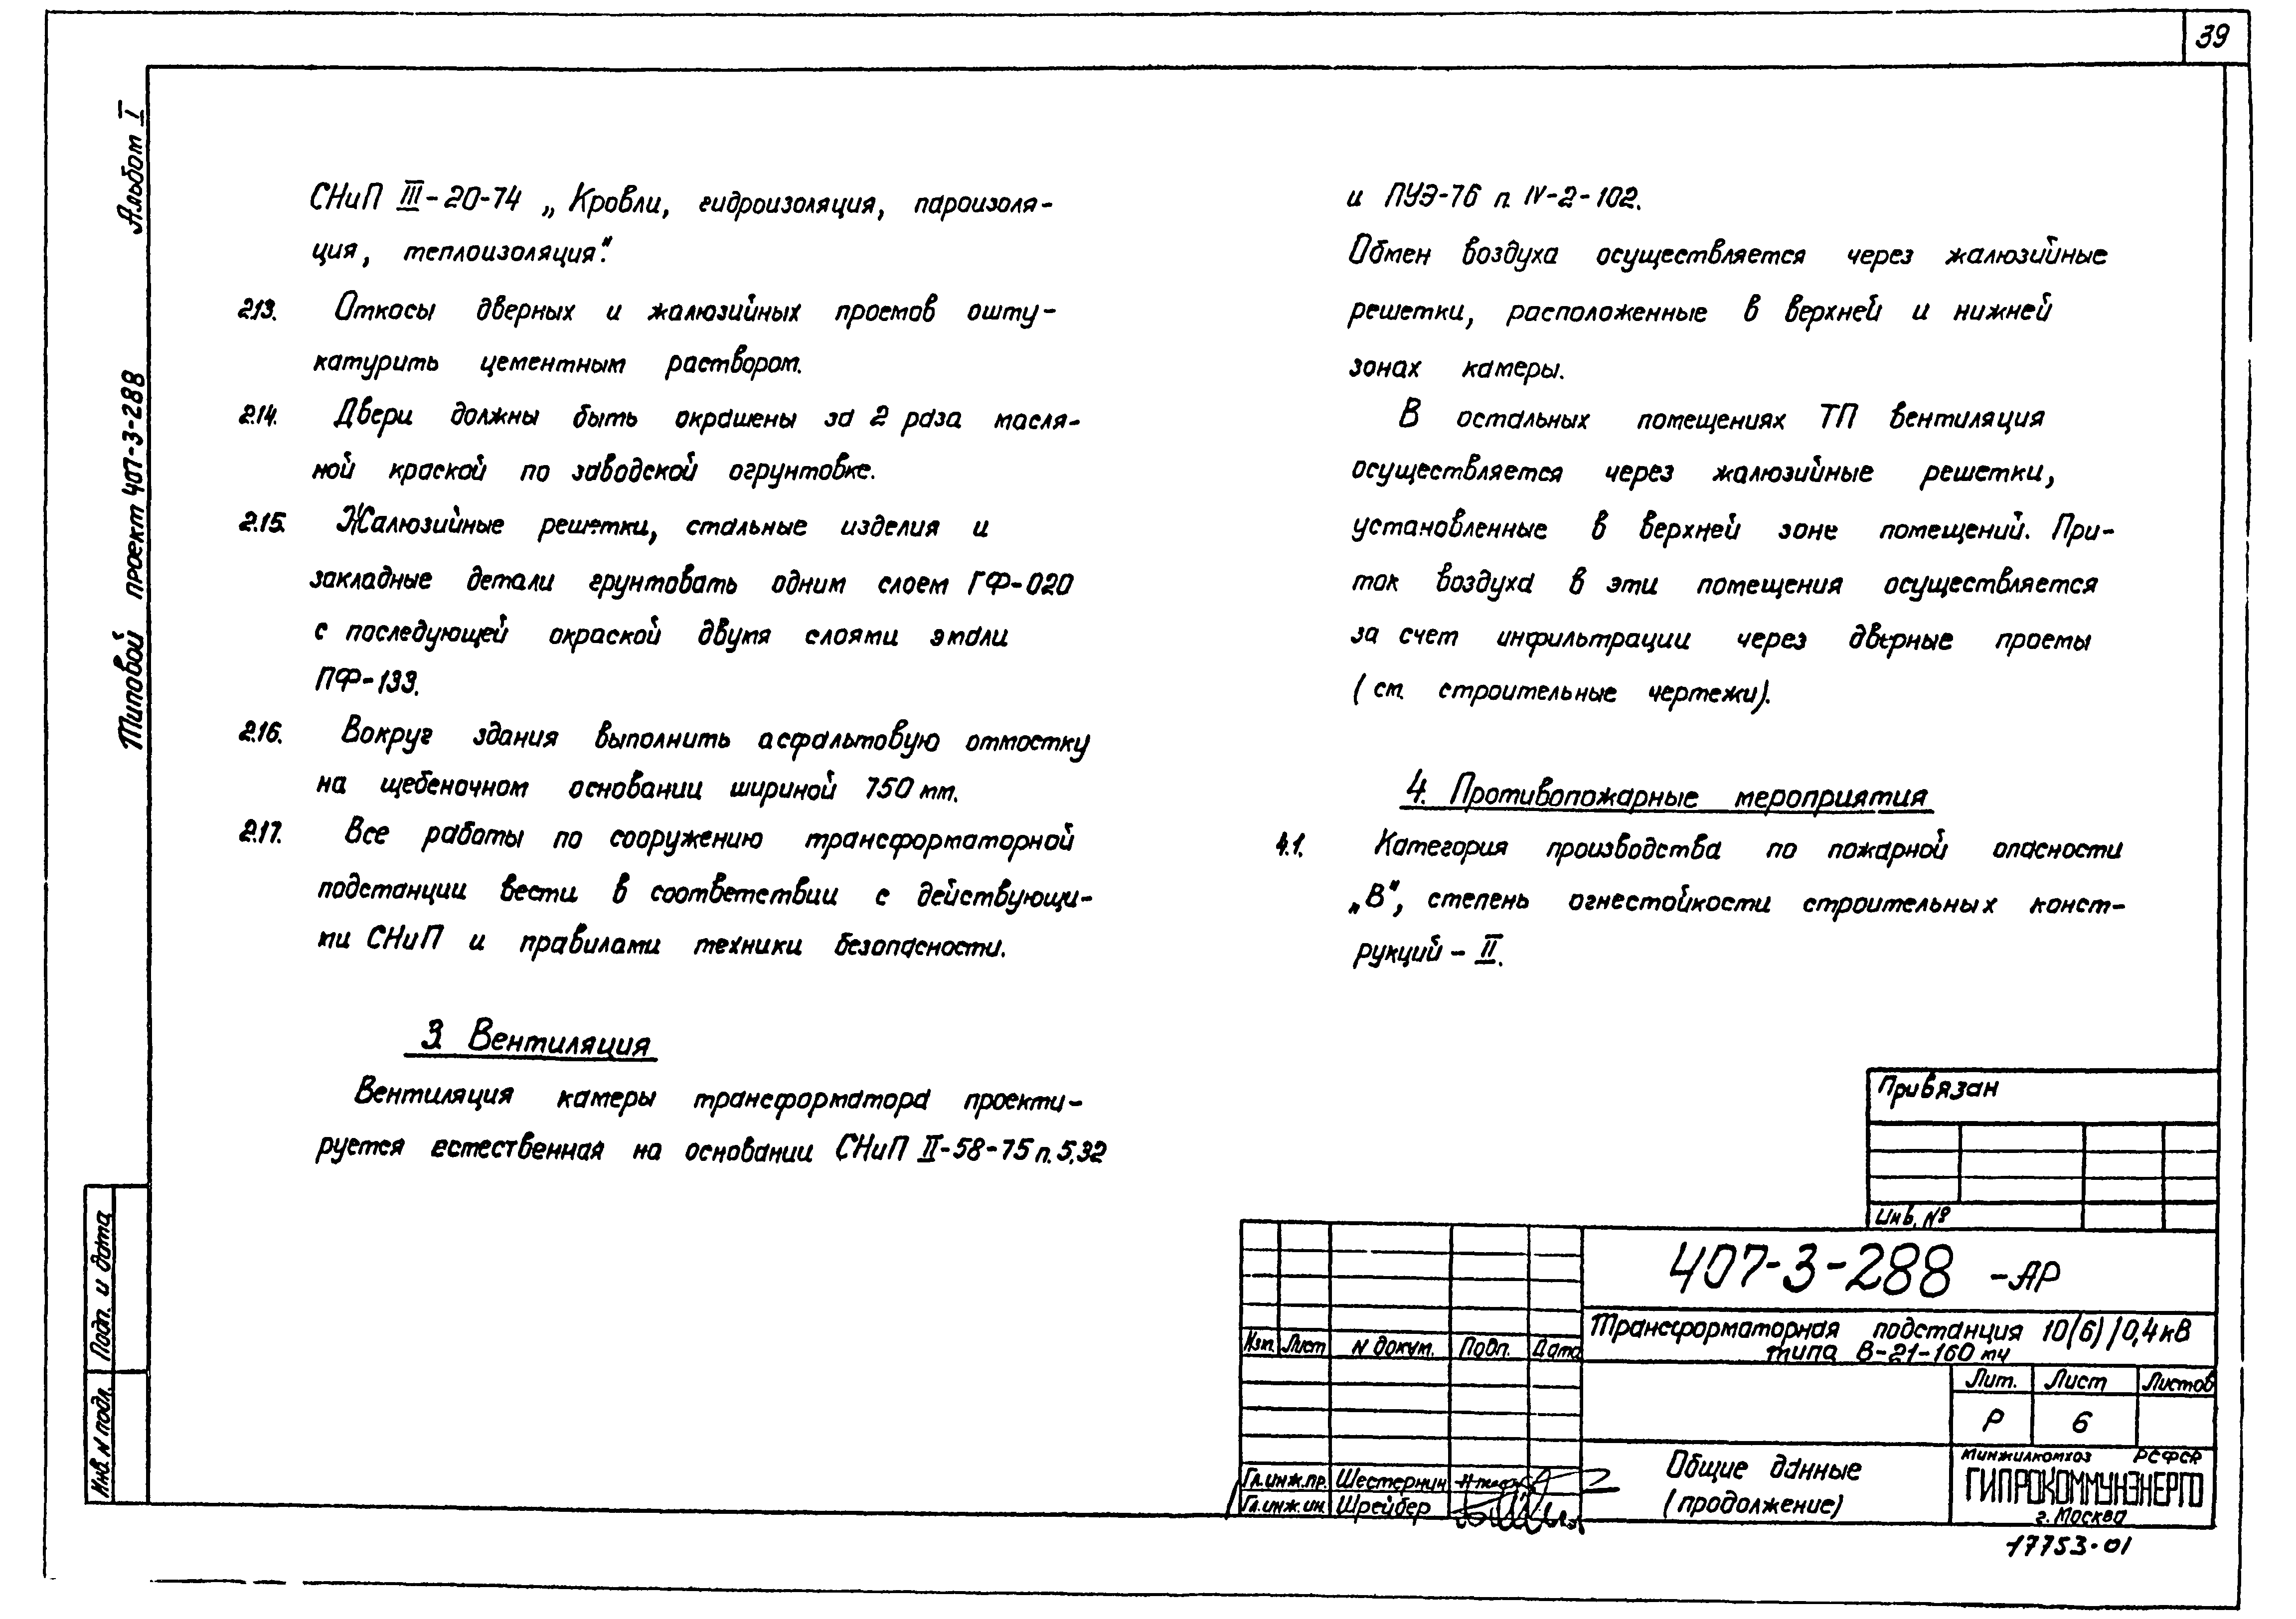 39
Альбом I
Типовой проект 407-3-288
СНиП III-20-74 „Кровли, гидроизоляция, пароизоля-
ция, теплоизоляция".
2.13. Откосы дверных и жалюзийных проемов ошту-
катурить цементным раствором.
2.14. Двери должны быть окрашены за 2 раза масля-
ной краской по заводской огрунтовке.
2.15. Жалюзийные решетки, стальные изделия и
закладные детали грунтовать одним слоем ГФ-020
с последующей окраской двумя слоями эмали
ПФ-133.
2.16. Вокруг здания выполнить асфальтовую отмостку
на щебеночном основании шириной 750 мм.
2.17. Все работы по сооружению трансформаторной
подстанции вести в соответствии с действующи-
ми СНиП и правилами техники безопасности.
3. Вентиляция
Вентиляция камеры трансформатора проекти-
руется естественная на основании СНиП II-58-75 п. 5.32
и ПУЭ-76 п. IV-2-102.
Обмен воздуха осуществляется через жалюзийные
решетки, расположенные в верхней и нижней
зонах камеры.
В остальных помещениях ТП вентиляция
осуществляется через жалюзийные решетки,
установленные в верхней зоне помещений. При-
ток воздуха в эти помещения осуществляется
за счет инфильтрации через дверные проемы
(см. строительные чертежи).
4. Противопожарные мероприятия
4.1. Категория производства по пожарной опасности
„В", степень огнестойкости строительных конст-
рукций - II.
Привязан
Инв. №
407-3-288 -АР
Трансформаторная подстанция 10(6)/0,4 кВ
типа В-21-160 м4
Изм. Лист N докум. Подп. Дата
Лит. Лист Листов
Р 6
Гл.инж.пр. Шестернин
Гл.инж.ин. Шрейбер
Общие данные
(продолжение)
Минжилкомхоз РСФСР
ГИПРОКОММУНЭНЕРГО
г. Москва
17753-01
Подп. и дата
Инв. N подл.